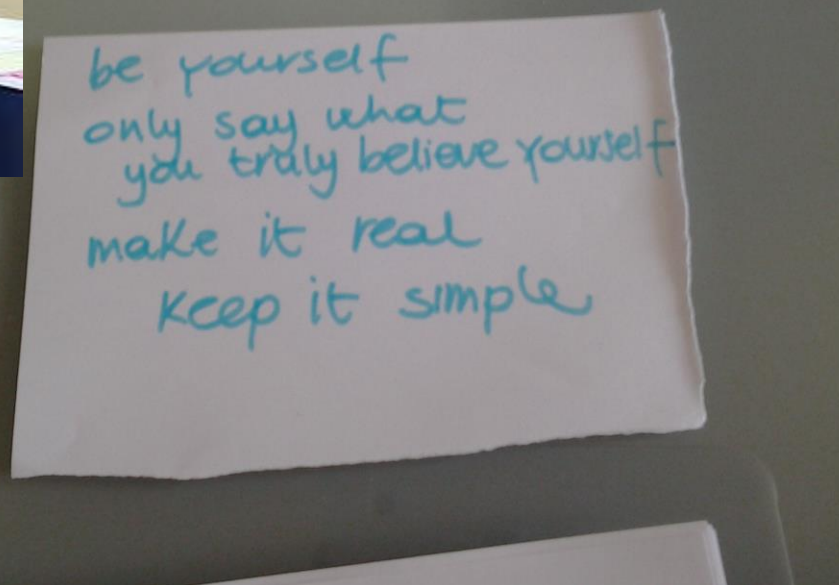 be yourself
only say what
you truly believe yourself
make it real
keep it simple